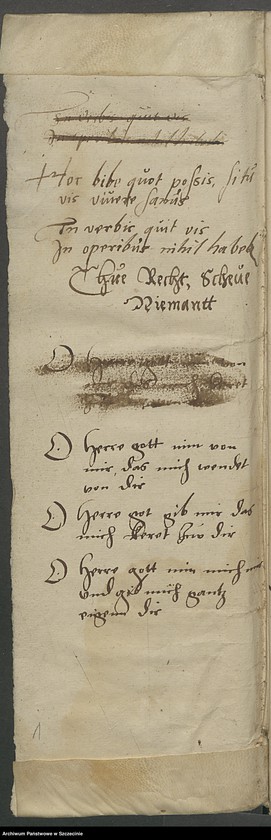 In verbis quit vis
Hoc bibe quot possis, si tu
vis vivere sanus
In verbis quit vis
In operibus nihil habet
Thue Recht, Scheue
Niemantt
O
O Herre gott nim von
mir, das mich wendet
von dir
O Herre got gib mir das
mich keret zuo dir
O Herre gott nim mich mir
und gib mich gantz
eigenn dir
1
Archiwum Państwowe w Szczecinie